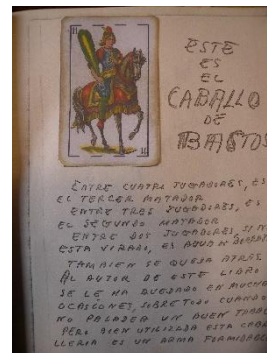 11
ESTE
ES
EL
CABALLO
DE
BASTOS
11
ENTRE CUATRO JUGADORES, ES
EL TERCER MATADOR
ENTRE TRES JUGADORES, ES
EL SEGUNDO MATADOR
ENTRE DOS JUGADORES, SI NO
ESTA VIRADO, ES
TAMBIEN SE QUEDA ATRAS
AL AUTOR DE ESTE LIBRO
SE LE HA QUEDADO EN MUCHAS
OCASIONES, SOBRE TODO CUANDO
NO PALADEA UN BUEN
PERO BIEN UTILIZADA ESTA CABA
LLERIA ES UN ARMA FORMIDABLE